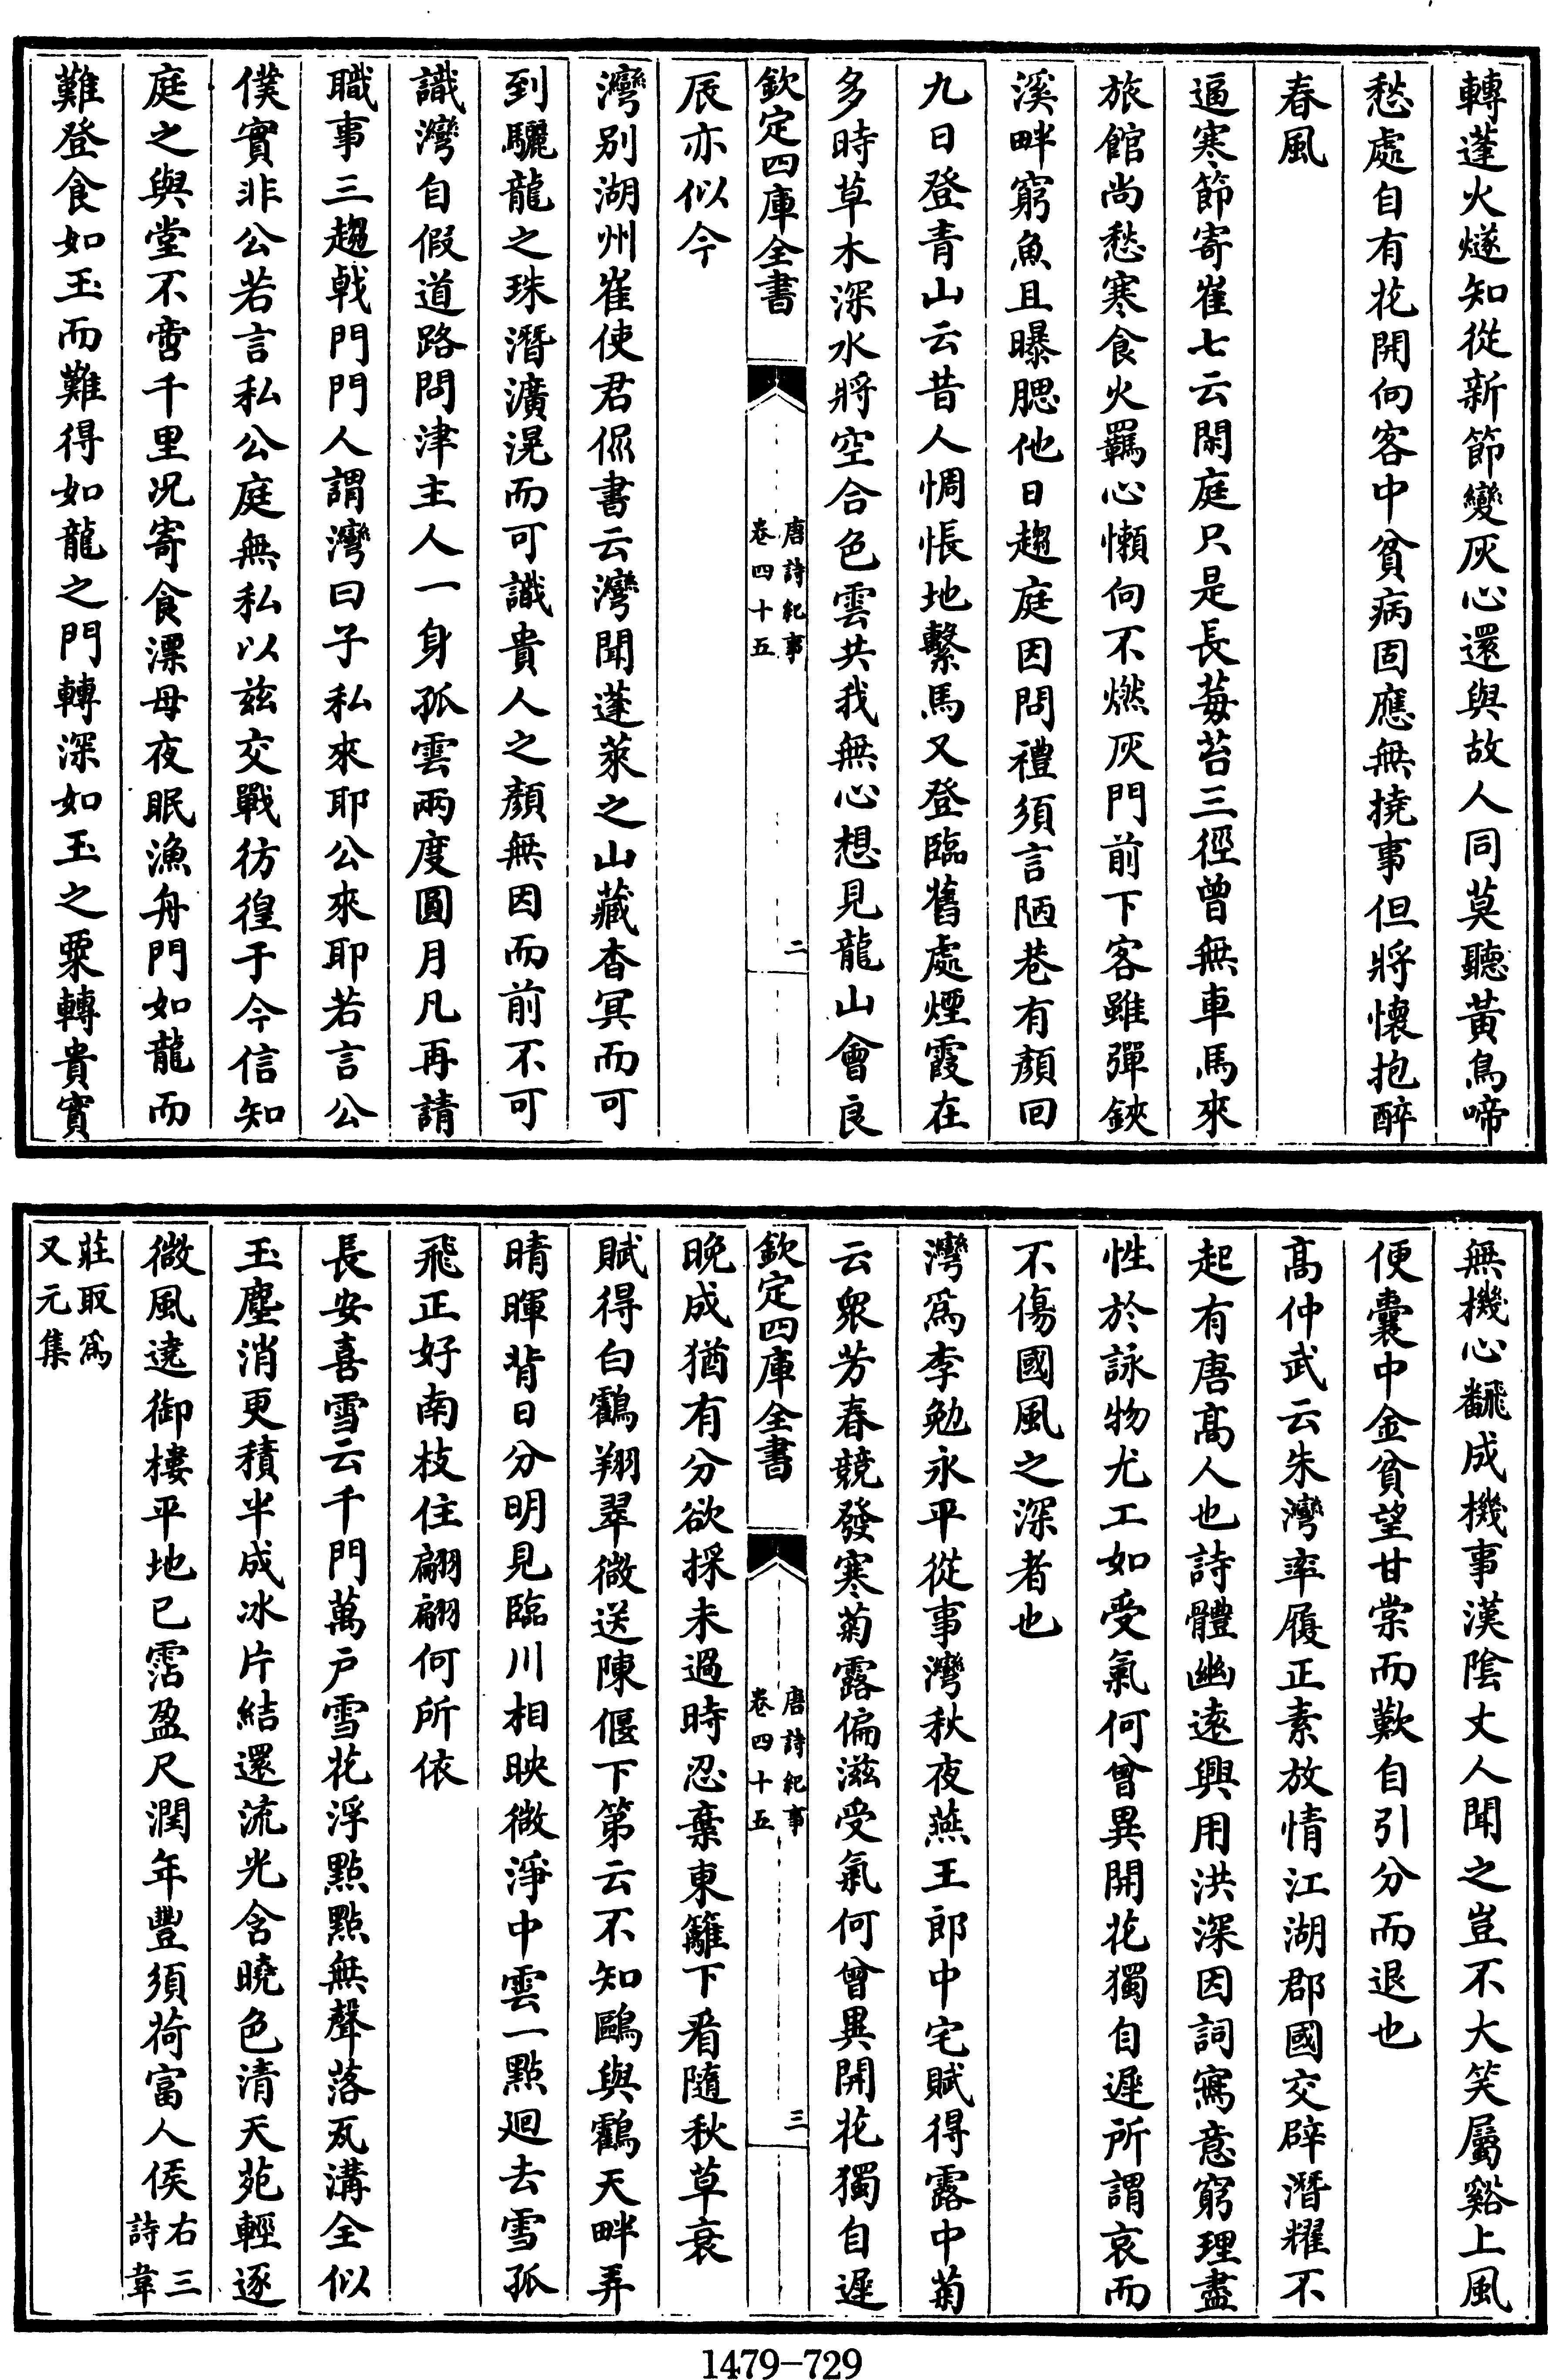 轉蓬火燧知從新節變灰心還與故人同莫聽黃鳥啼
愁處自有花開向客中貧病固應無撓事但將懷抱醉
春風
逼寒節寄崔七云閑庭只是長莓苔三徑曾無車馬來
旅館尚愁寒食火羈心懶向不燃灰門前下客雖彈鋏
溪畔窮魚且曝腮他日趨庭因問禮須言陋巷有顏回
九日登青山云昔人惆悵地繫馬又登臨舊處煙霞在
多時草木深水將空合色雲共我無心想見龍山會良
欽定四庫全書
唐詩紀事
卷四十五
二
辰亦似今
灣别湖州崔使君侃書云灣聞蓬萊之山藏杳冥而可
到驪龍之珠潛瀇滉而可識貴人之顏無因而前不可
識灣自假道路問津主人一身孤雲兩度圓月凡再請
職事三趨戟門門人謂灣曰子私來耶公來耶若言公
僕實非公若言私公庭無私以兹交戰彷徨于今信知
庭之與堂不啻千里况寄食漂母夜眠漁舟門如龍而
難登食如玉而難得如龍之門轉深如玉之粟轉貴實
無機心飜成機事漢陰丈人聞之豈不大笑屬谿上風
便囊中金貧望甘棠而歎自引分而退也
髙仲武云朱灣率履正素放情江湖郡國交辟潛耀不
起有唐髙人也詩體幽遠興用洪深因詞寫意窮理盡
性於詠物尤工如受氣何曾異開花獨自遲所謂哀而
不傷國風之深者也
灣為李勉永平從事灣秋夜燕王郎中宅賦得露中菊
云衆芳春競發寒菊露偏滋受氣何曾異開花獨自遲
欽定四庫全書
唐詩紀事
卷四十五
三
晚成猶有分欲採未過時忍棄東籬下看隨秋草衰
賦得白鸖翔翠微送陳偃下第云不知鷗與鸖天畔弄
晴暉背日分明見臨川相映微淨中雲一點廻去雪孤
飛正好南枝住翩翩何所依
長安喜雪云千門萬户雪花浮點點無聲落瓦溝全似
玉塵消更積半成冰片結還流光含曉色清天苑輕逐
微風遶御樓平地已霑盈尺潤年豐須荷富人侯右三
詩韋
莊取為
又元集
1479-729